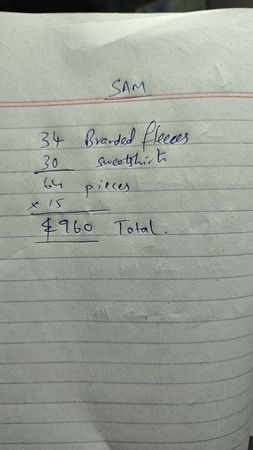 SAM
34 Branded fleeces
30 sweatshirts
64 pieces
x 15
£960 Total.